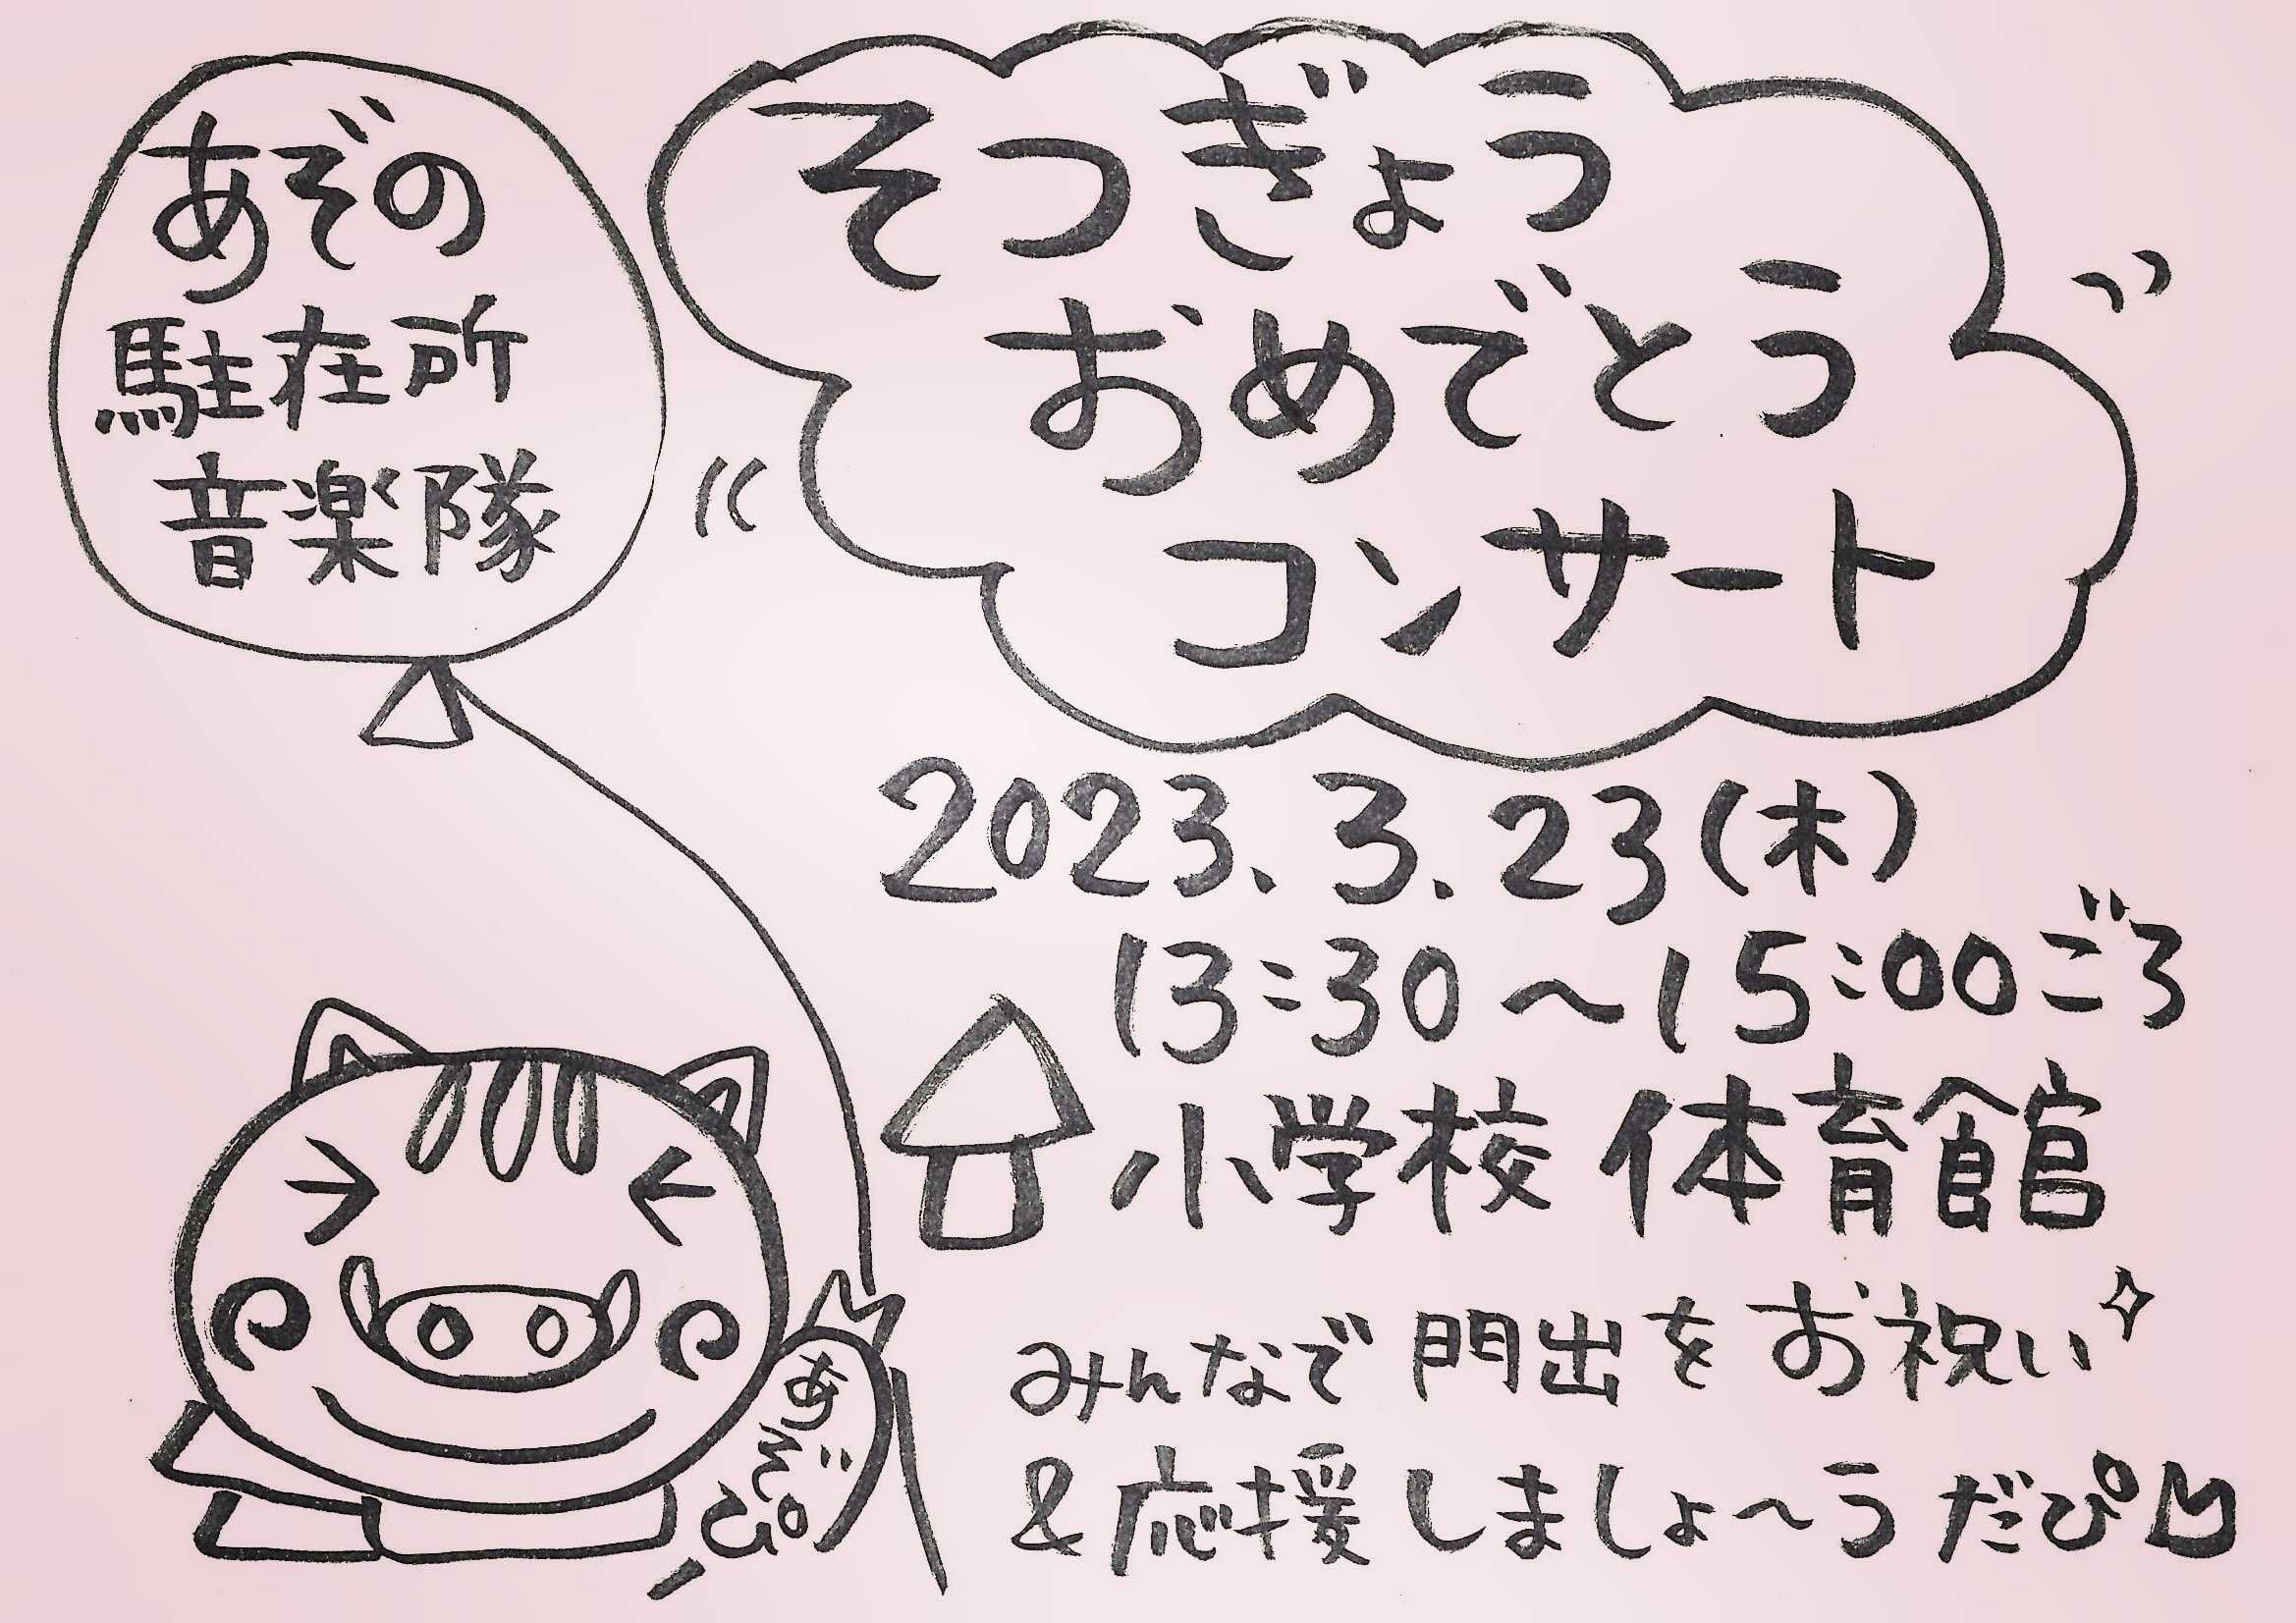 あぞの
駐在所
音楽隊
そつぎょう
おめでとう
コンサート
2023.3.23(木)
13:30〜15:00ごろ
小学校 体育館
みんなで門出をお祝い
&応援しましょ〜うだぴ
あぞぴ